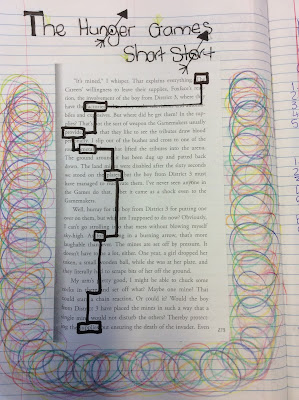 The Hunger Games
Short Start
"It's mined," I whisper. That explains everything.
Careers' willingness to leave their supplies, Foxface's
tion, the involvement of the boy from District 3, where
have the
and explosives. But where did he get them? In the sup-
plies? That's not the sort of weapon the Gamemakers usually
that they like to see the tributes draw blood
slip out of the bushes and cross to one of the
lifted the tributes into the arena.
The ground around it has been dug up and patted back
down. The land mines were disabled after the sixty seconds
we stood on the but the boy from District 3 must
have managed to them. I've never seen anyone in
the Games do that. I bet it came as a shock even to the
Gamemakers.
Well, hurray for the boy from District 3 for putting one
over on them, but what am I supposed to do now? Obviously,
I can't go strolling into that mess without blowing myself
sky-high. As for in a burning arrow, that's more
laughable than ever. The mines are set off by pressure. It
doesn't have to be a lot, either. One year, a girl dropped her
token, a small wooden ball, while she was at her plate, and
they literally had to scrape bits of her off the ground.
My arm's pretty good, I might be able to chuck some
rocks in there and set off what? Maybe one mine? That
could start a chain reaction. Or could it? Would the boy
from District 3 have placed the mines in such a way that a
single mine would not disturb the others? Thereby protect-
ing the but ensuring the death of the invader. Even